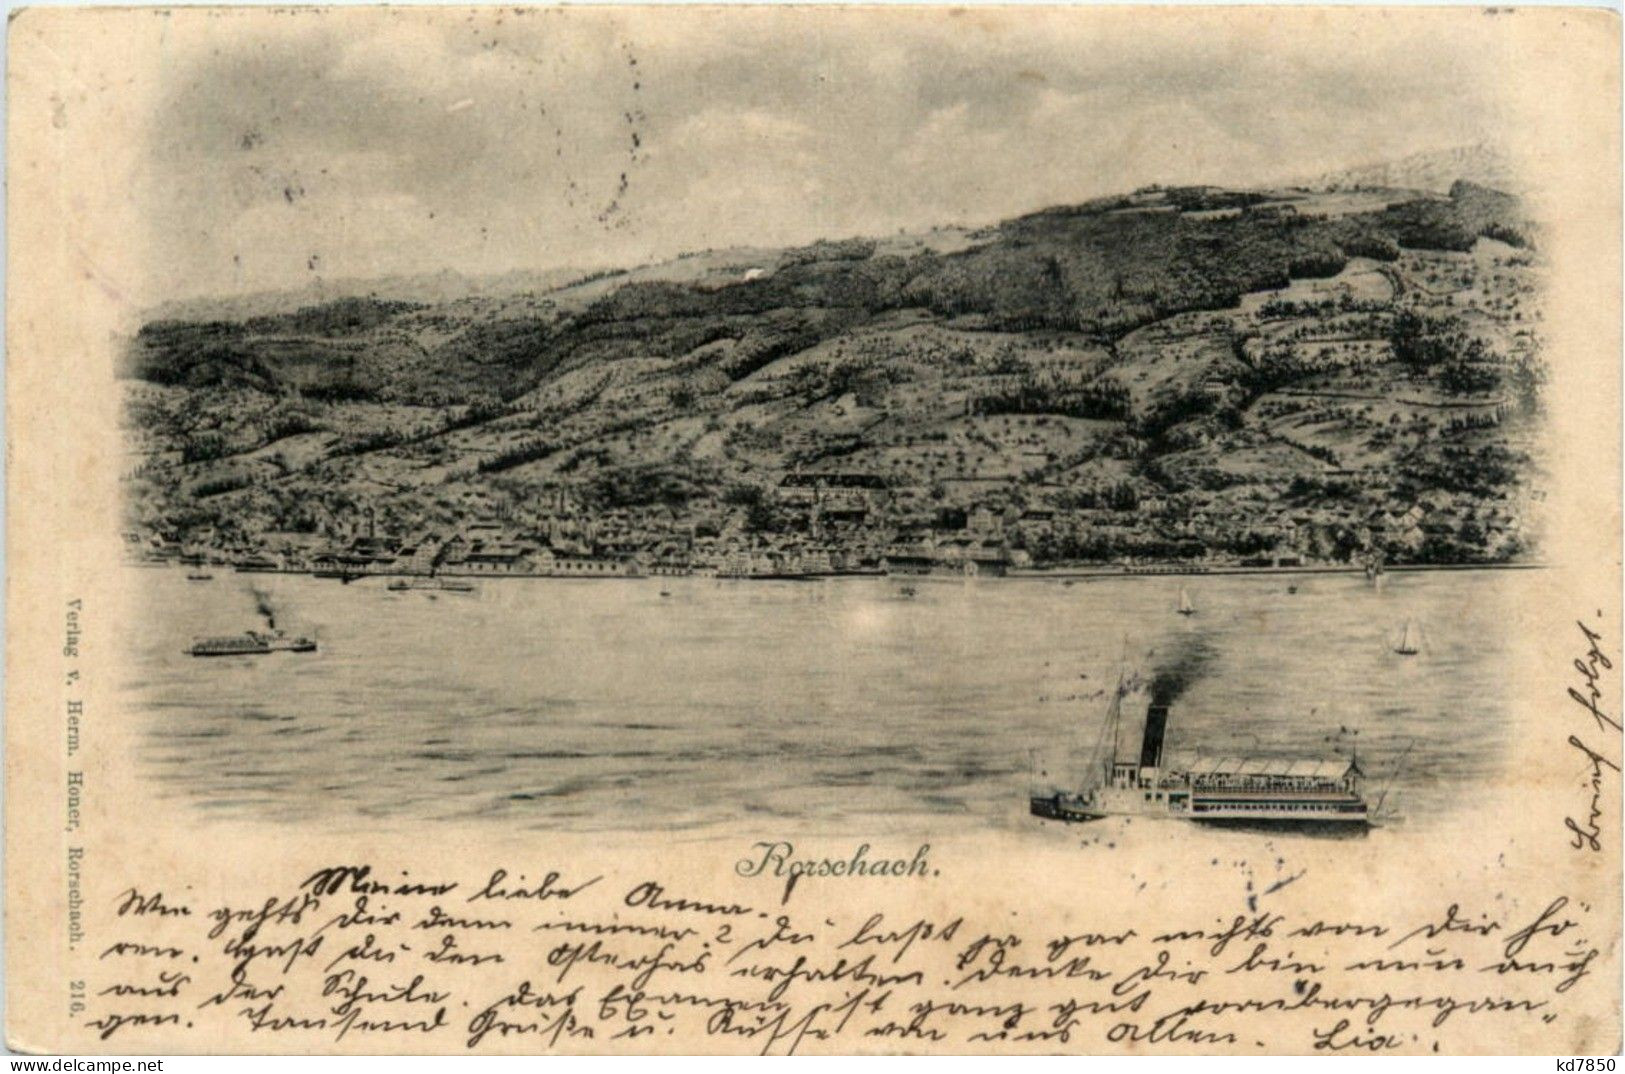 Rorschach.
Meine liebe Anna.
Wie gehts dir denn immer? Du laßt ja gar nichts von dir hö-
ren. Hast du den Osterhas erhalten. Denke dir bin nun auch
aus der Schule. Das Examen ist ganz gut vorübergegan-
gen. Tausend Grüße u. Küsse von uns allen. Lia.
Brief folgt.
Verlag v. Herm. Honer, Rorschach. 216.
kd7850